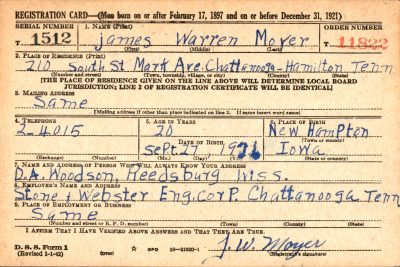 REGISTRATION CARD—(Men born on or after February 17, 1897 and on or before December 31, 1921)
SERIAL NUMBER 1. NAME (Print) ORDER NUMBER
T 1512 James Warren Moyer 11822
(First) (Middle) (Last)
2. PLACE OF RESIDENCE (Print)
210 South St Mark Ave. Chattanooga-Hamilton Tenn
(Number and street) (Town, township, village, or city) (County) (State)
[THE PLACE OF RESIDENCE GIVEN ON THE LINE ABOVE WILL DETERMINE LOCAL BOARD
JURISDICTION; LINE 2 OF REGISTRATION CERTIFICATE WILL BE IDENTICAL]
3. MAILING ADDRESS
Same
[Mailing address if other than place indicated on line 2. If same insert word same]
4. TELEPHONE 5. AGE IN YEARS 6. PLACE OF BIRTH
2-4015 20 New Hampton
DATE OF BIRTH (Town or county)
Sept. 27 1921 Iowa
(Exchange) (Number) (Mo.) (Day) (Yr.) (State or country)
7. NAME AND ADDRESS OF PERSON WHO WILL ALWAYS KNOW YOUR ADDRESS
D.A. Woodson, Reedsburg Wiss.
8. EMPLOYER'S NAME AND ADDRESS
Stone & Webster Eng. Corp. Chattanooga Tenn
9. PLACE OF EMPLOYMENT OR BUSINESS
Same
(Number and street or R. F. D. number) (Town) (County) (State)
I AFFIRM THAT I HAVE VERIFIED ABOVE ANSWERS AND THAT THEY ARE TRUE.
D. S. S. Form 1 J. W. Moyer
(Revised 1-1-42) (over) GPO 16—21630-1 (Registrant's signature)